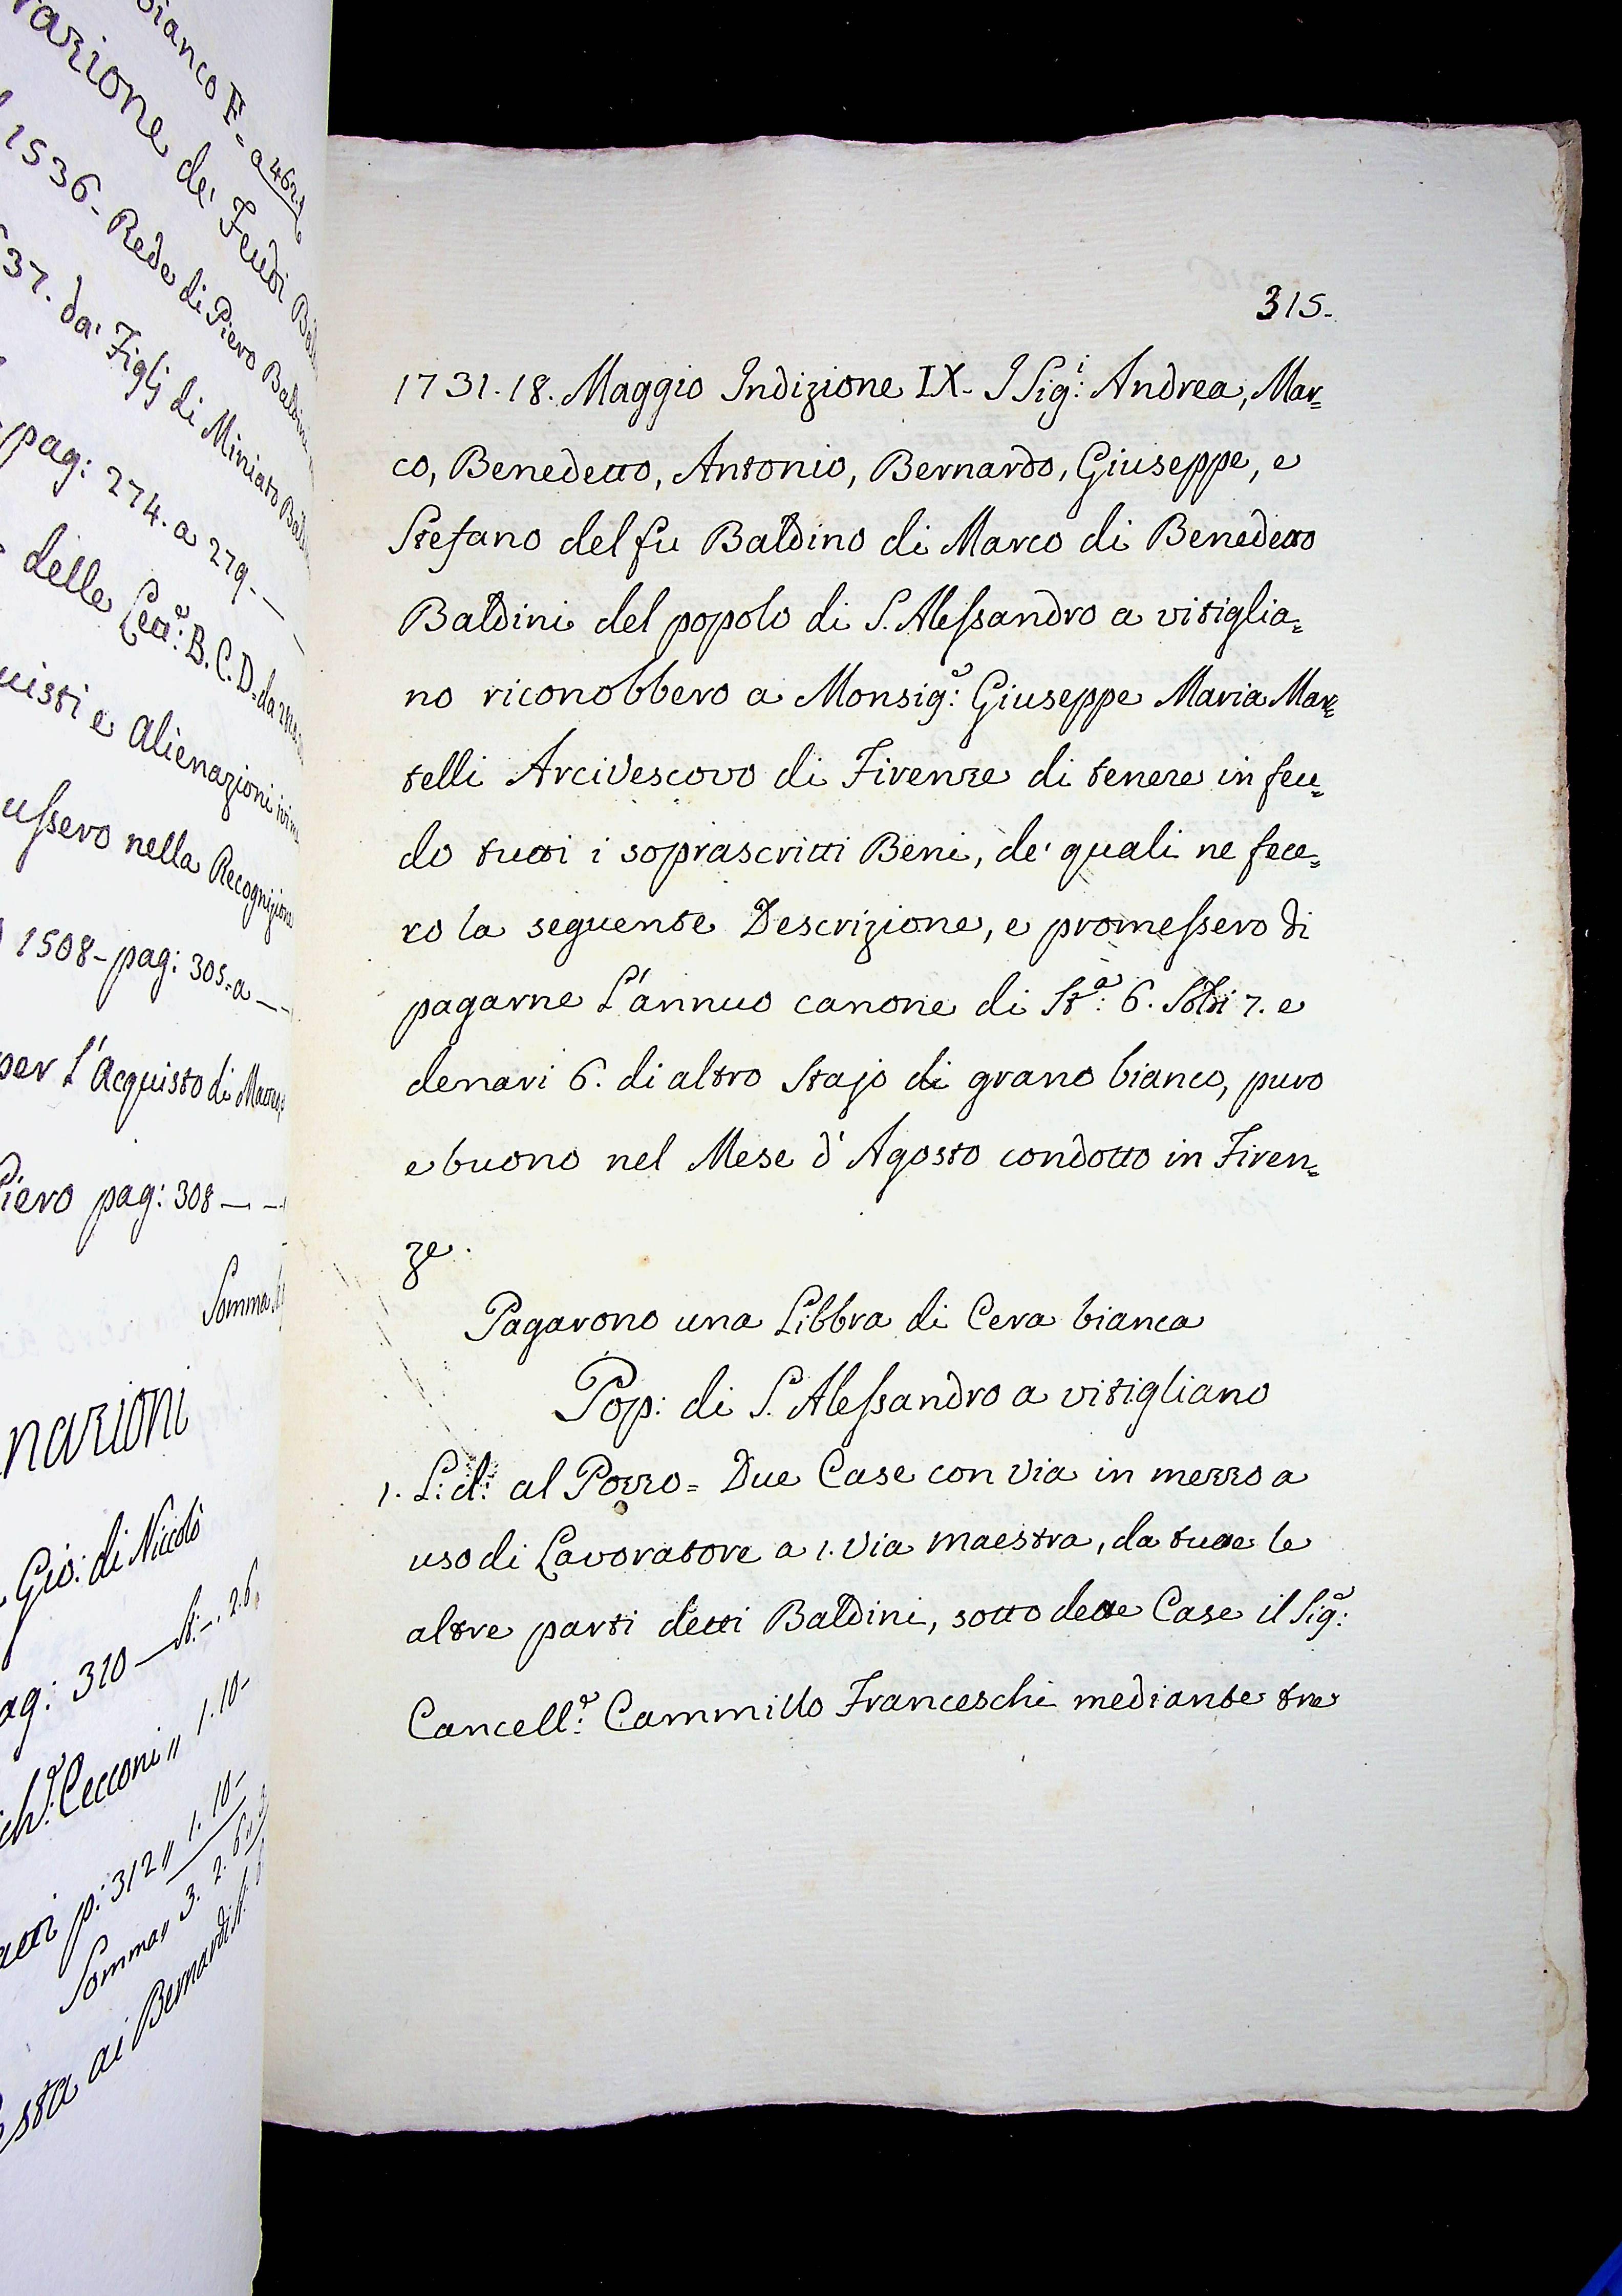 ianco F- a 462.
razione de' Feudi
1536- Rede di Piero Baldini
37. da' Figlj di Miniato
pag: 274. a 279- —
delle Lett.e B. C. D. da
uisti e Alienazioni
ussero nella Recognizione
1508- pag: 305. a —
per l'Acquisto di
Piero pag: 308 — —
Somma
nazioni
Gio: di Niccolò
ag: 310 — St: -. 2.6
Cecconi „ 1.10-
p: 312 „ 1.10-
Somma „ 3. 2. 6
sta ai Bernardi
315-
1731. 18. Maggio Indizione IX- I Sig.i: Andrea, Mar=
co, Benedetto, Antonio, Bernardo, Giuseppe, e
Stefano del fu Baldino di Marco di Benedetto
Baldini del popolo di S. Alessandro a vitiglia=
no riconobbero a Monsig.e: Giuseppe Maria Mar=
telli Arcivescovo di Firenze di tenere in feu=
do tutti i soprascritti Beni, de' quali ne fece=
ro la seguente Descrizione, e promessero di
pagarne L'annuo canone di St.a: 6. Soldi 7. e
denari 6. di altro Stajo di grano bianco, puro
e buono nel Mese d'Agosto condotto in Firen=
ze.
Pagarono una Libbra di Cera bianca
Pop: di S. Alessandro a vitigliano
1. L: d: al Pozzo= Due Case con via in mezzo a
uso di Lavoratore a 1. via maestra, da tutte le
altre parti detti Baldini, sotto dette Case il Sig.e:
Cancell.e: Cammillo Franceschi mediante tre